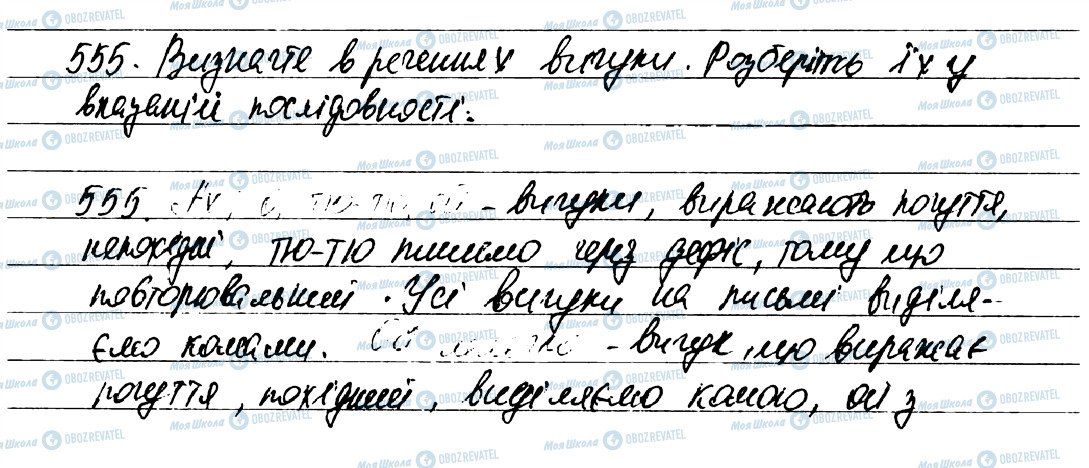 555. Визначте в реченнях вигуки. Розберіть їх у
вказаній послідовності.
555. Ах, о, тю-тю, ой - вигуки, виражають почуття,
непохідні, тю-тю пишемо через дефіс, тому що
повторювальний. Усі вигуки на письмі виділя-
ємо комами. Ой - вигук, що виражає
почуття, похідний, виділяємо комою, ой з